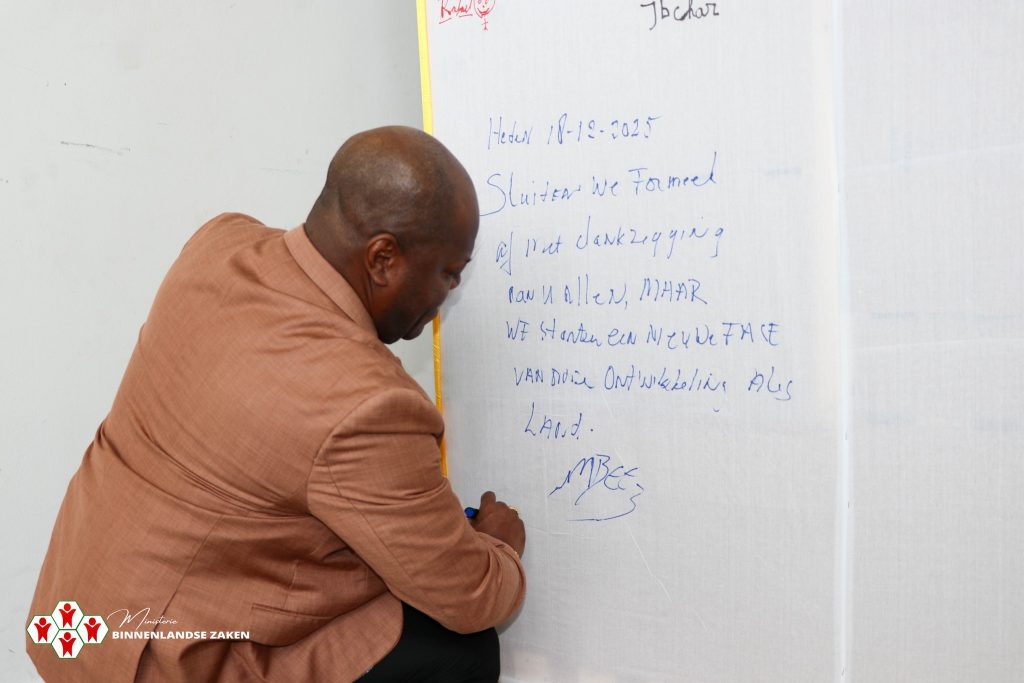 Jbchar
Heden 18-12-2025
Sluiten we Formeel
af met dankzegging
aan u Allen, MAAR
WE starten een Nieuwe FASE
VAN Ontwikkeling Als
LAND.
MBEE
Ministerie
BINNENLANDSE ZAKEN